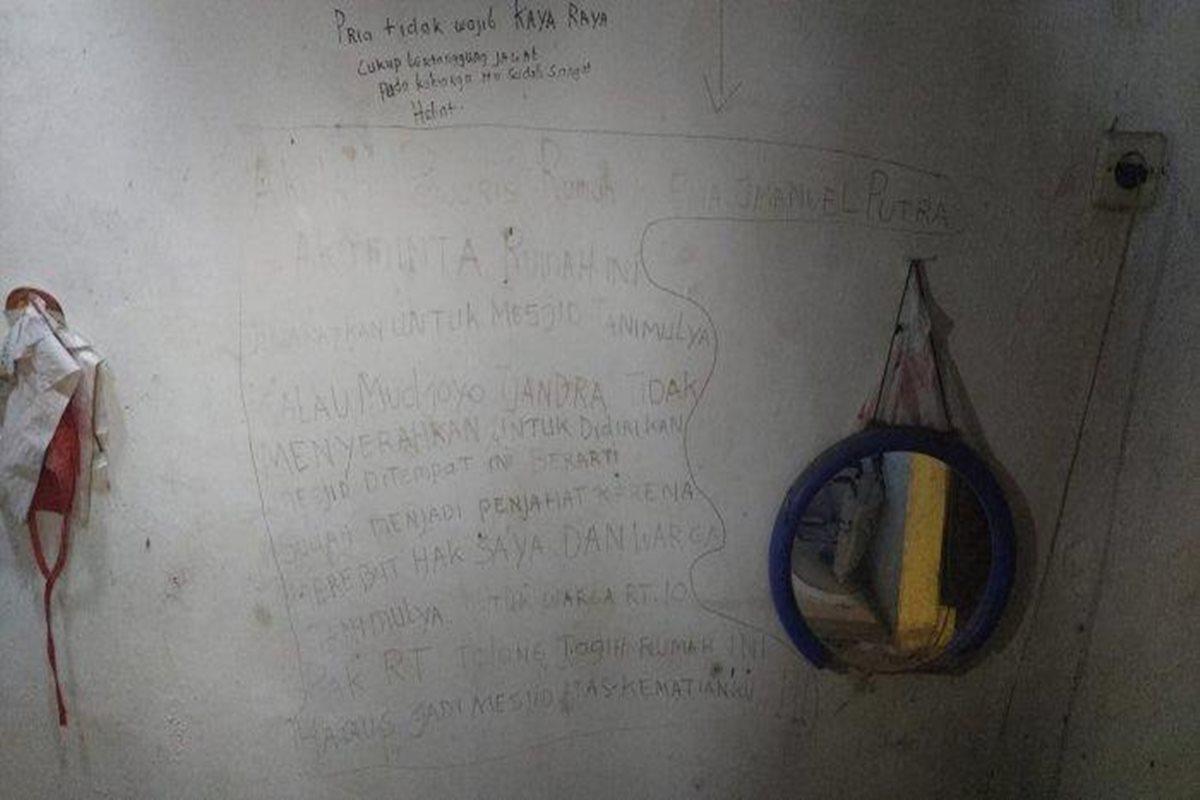 Pria tidak wajib KAYA RAYA
Cukup bertanggung jawab
Pada
Rumah EMANUEL PUTRA
AKU MINTA RUMAH INI
UNTUK MESJID TANIMULYA
KALAU Mudjoyo TJANDRA TIDAK
MENYERAHKAN UNTUK DIDIRIKAN
MESJID DITEMPAT INI BERARTI
MENJADI PENJAHAT KARENA
MEREBUT HAK SAYA DAN WARGA
TANIMULYA. UNTUK WARGA RT.10
PAK RT TOLONG TAGIH RUMAH INI
HARUS JADI MESJID ATAS KEMATIANKU !!!